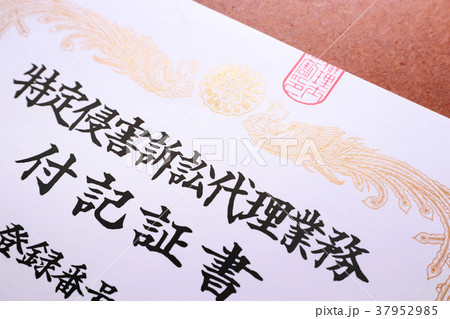 特定侵害訴訟代理業務
付記証書
登録番号
pixta.jp - 37952985